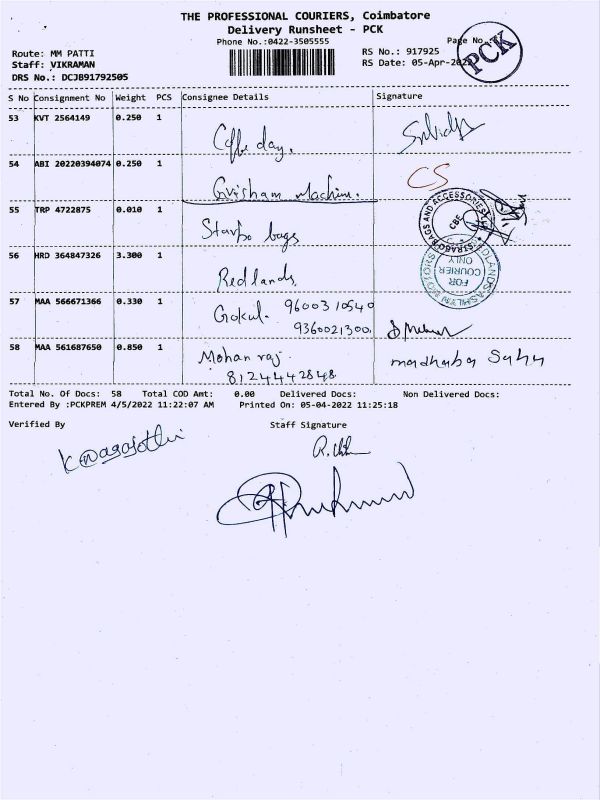 THE PROFESSIONAL COURIERS, Coimbatore
Delivery Runsheet - PCK
Phone No.:0422-3505555
Page No.
PCK
Route: MM PATTI
RS No.: 917925
Staff: VIKRAMAN
RS Date: 05-Apr-2022
DRS No.: DCJB91792505
S No Consignment No Weight PCS Consignee Details Signature
53 KVT 2564149 0.250 1 Coffe day.
54 ABI 20220394074 0.250 1 Grisham Machine. CS
55 TRP 4722875 0.010 1 Starbo bags
STRABO BAGS AND ACCESSORIES
CBE
56 HRD 364847326 3.300 1 Redlands.
FOR COURIER ONLY
57 MAA 566671366 0.330 1 Gokul. 9600310540
9360021300.
58 MAA 561687650 0.850 1 Mohan raj. madhuba Sahu
8124442848
Total No. Of Docs: 58 Total COD Amt: 0.00 Delivered Docs: Non Delivered Docs:
Entered By :PCKPREM 4/5/2022 11:22:07 AM Printed On: 05-04-2022 11:25:18
Verified By Staff Signature